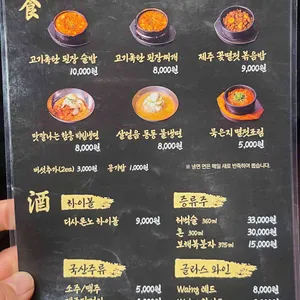 食
고기폭탄 된장 술밥
10,000원
고기폭탄 된장찌개
8,000원
제주 꽃멸젓 볶음밥
9,000원
맛깔나는 함흥 비빔냉면
8,000원
살얼음 동동 물냉면
8,000원
묵은지 멸젓조림
5,000원
버섯추가(2ea) 3,000원 공기밥 1,000원
※ 냉면 면은 매일 새로 반죽하여 뽑습니다.
酒
하이볼
디사론노 하이볼 9,000원
증류주
려 360㎖ 33,000원
30,000원
보해복분자 375㎖ 15,000원
국산주류
소주/맥주 5,000원
글라스 와인
레드 8,000원